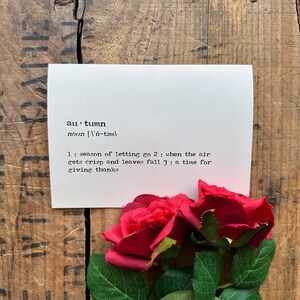 au·tumn
noun |\'ȯ-təm\
1 : season of letting go 2 : when the air
gets crisp and leaves fall 3 : a time for
giving thanks